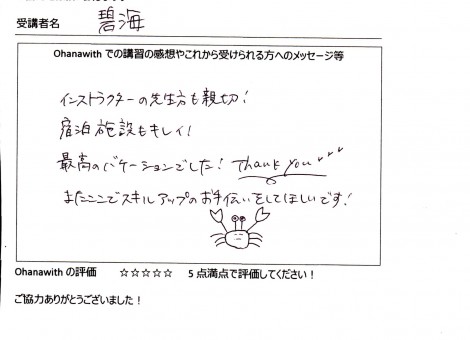 受講者名 碧海
Ohanawith での講習の感想やこれから受けられる方へのメッセージ等
インストラクターの先生方も親切!
宿泊施設もキレイ!
最高のバケーションでした! Thank you
またここでスキルアップのお手伝いをしてほしいです!
Ohanawith の評価 ☆☆☆☆☆ 5 点満点で評価してください!
ご協力ありがとうございました!